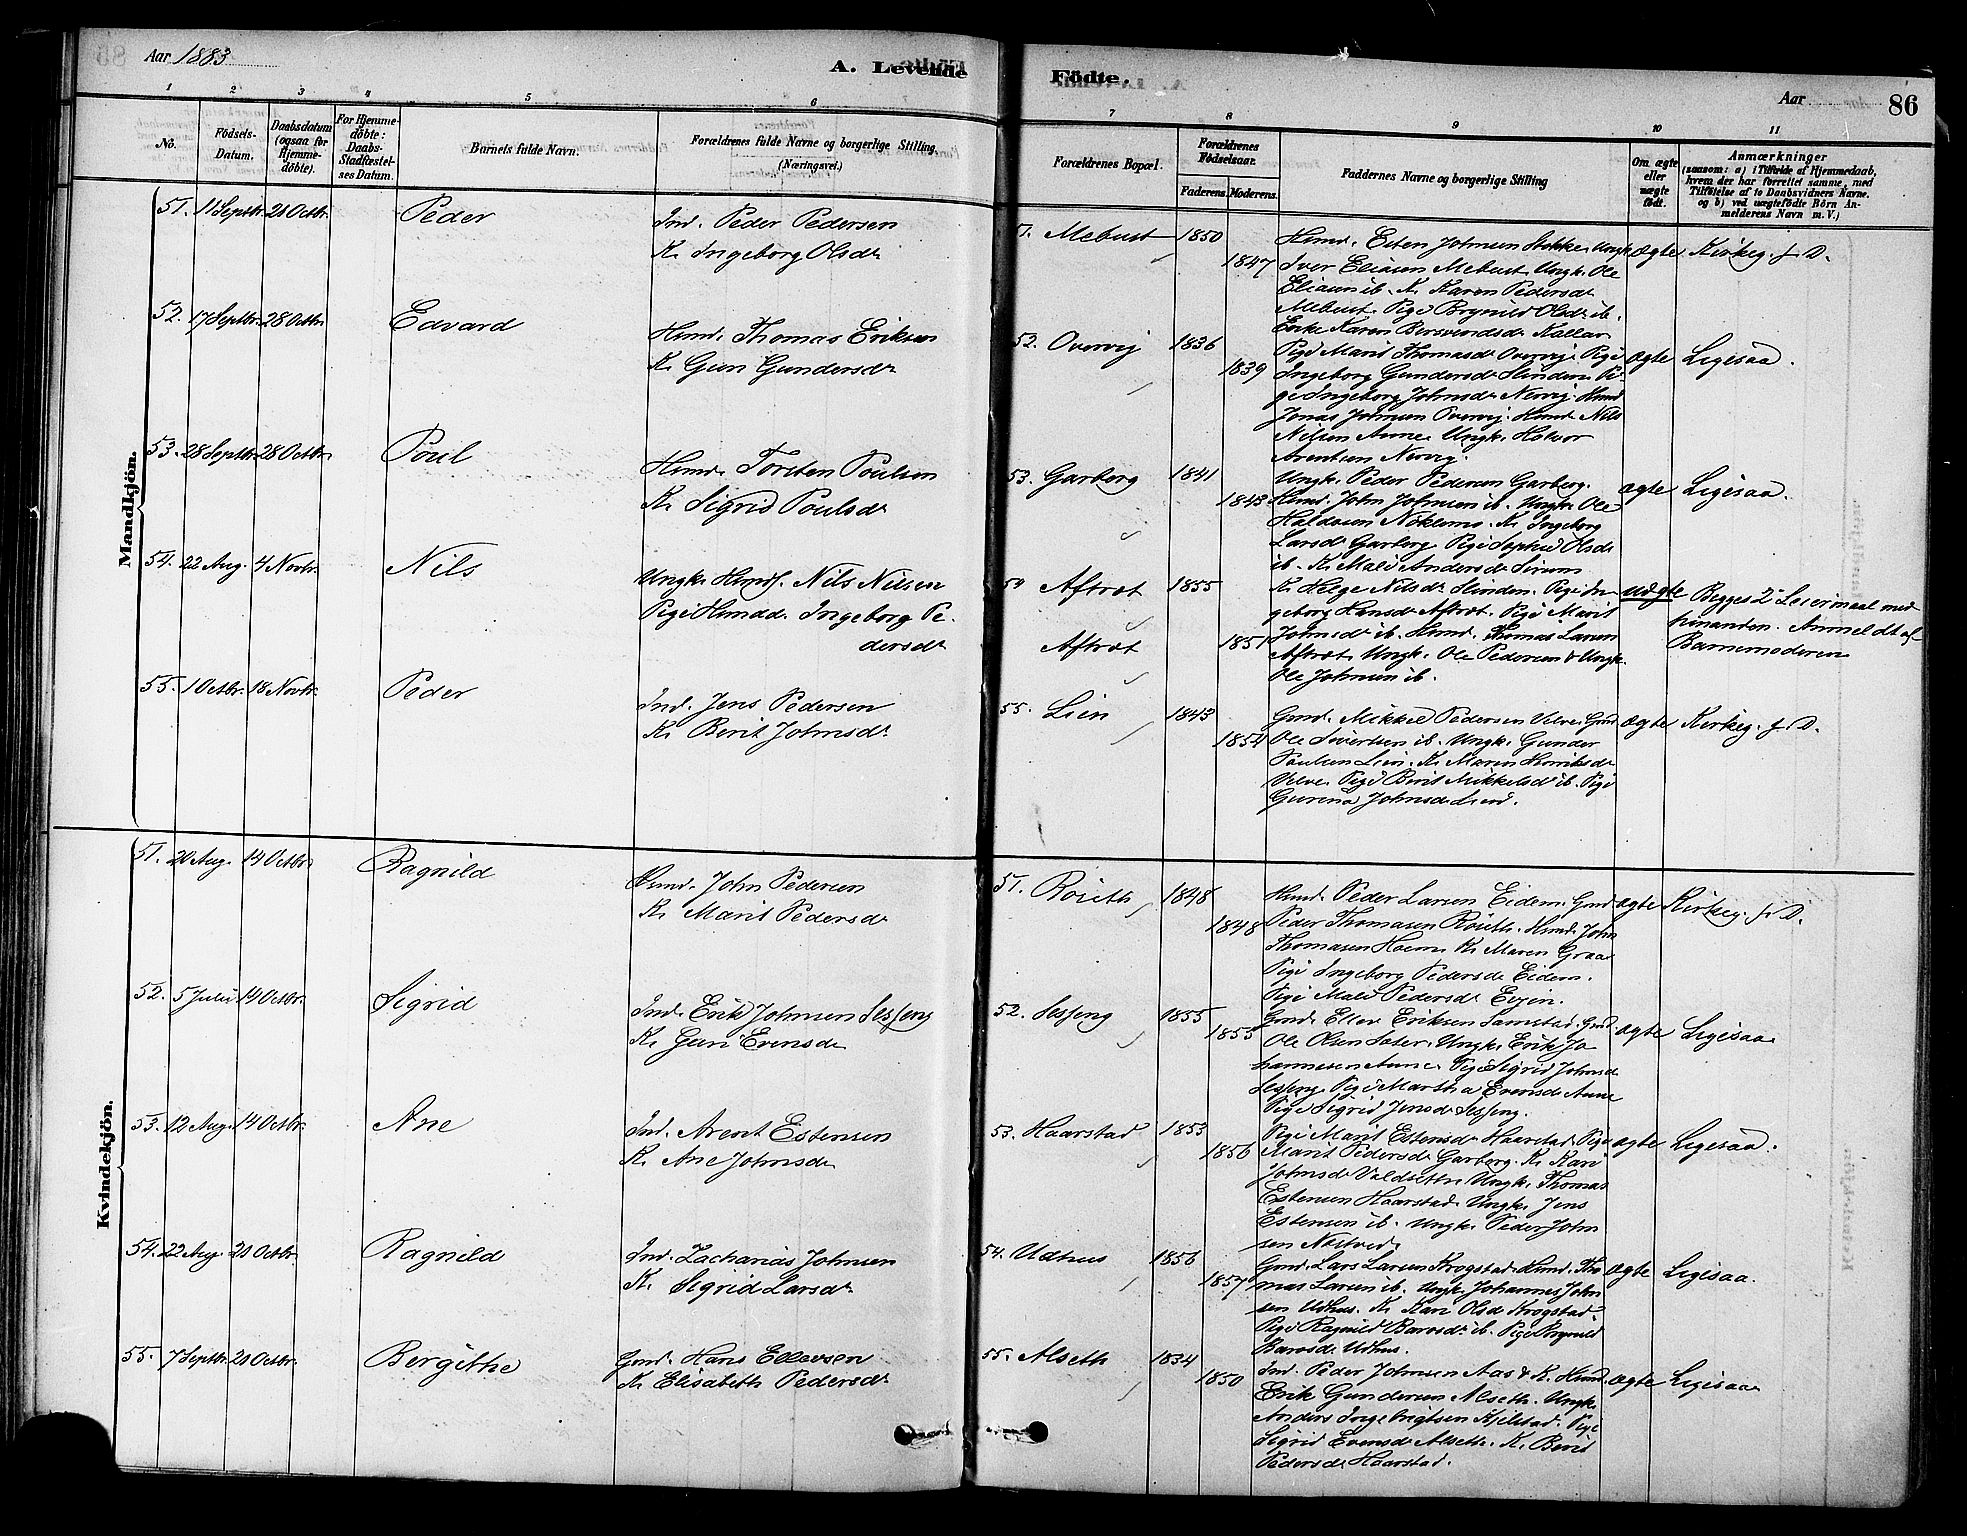 Aar 1883
A. Levende
Födte.
Aar
86
1 2 3 4 5 6
7 8 9 10 11
No.
Födsels-
Datum.
Daabsdatum
(ogsaa for
Hjemme-
döbte).
For Hjemme-
döbte:
Daabs-
Stadfæstel-
ses Datum.
Barnets fulde Navn.
Forældrenes fulde Navne og borgerlige Stilling.
(Næringsvei.)
Forældrenes Bopæl.
Forældrenes
Födselsaar.
Faderens. Moderens.
Faddernes Navne og borgerlige Stilling
Om ægte
eller
uægte
födt.
Anmærkninger
(saasom: a) i Tilfælde af Hjemmedaab,
hvem der har forrettet samme, med
Tilföielse af to Daabsvidners Navne.
og b) ved uægtefödte Börn An-
melderens Navn m. V.)
Mandkjön.
51. 11 Septbr. 21 Octbr. Peder
Ind. Peder Pedersen
K. Ingeborg Olsdr
51. Mebust 1850
1847
Husmd. Esten Johnsen Stokke. Ungk.
Iver Eliasen Mebust. Ungk. Ole
Eliasen ib. K. Karen Pedersdr
Mebust. Pige Brynild Olsdr ib.
Enke Karen Bersvendsdr Kallar
ægte Kirkeg. f. D.
52. 17 Septbr. 28 Octbr. Edvard
Husmd. Thomas Eriksen
K. Guri Gundersdr
52. Overvig 1836
1839
Pige Marit Thomasdr Overvig. Pige
Ingeborg Gundersdr Slinden. Pi-
ge Ingeborg Johnsdr Nervig. Husmd
Jonas Johnsen Overvig. Husmd. Nils
Nilsen Aune. Ungk. Halvor
Arentsen Nervig.
ægte Ligesaa.
53. 28 Septbr. 28 Octbr. Poul
Husmd. Torsten Poulsen
K. Sigrid Poulsdr
53. Garberg 1841
1843
Ungk. Peder Pedersen Garberg.
Husmd. John Johnsen ib. Ungk. Ole
Haldosen Noklemo. K. Ingeborg
Larsdr Garberg. Pige Sophie Olsdr
ib. K. Mali Andersdr
ægte Ligesaa.
54. 22 Aug. 4 Novbr. Nils
Ungk. Husmdf. Nils Nilsen
Pige Husmdd. Ingeborg Pe-
dersdr
54 Aftret 1855
Aftret 1851
K. Helge Nilsdr Slinden. Pige In-
geborg Hansdr Aftret. Pige Marit
Johnsdr ib. Husmd. Thomas Larsen
Aftret. Ungk. Ole Pedersen & Ungk.
Ole Johnsen ib.
uægte Begges 2det Leiermaal med
hinanden. Anmeldt af
Barnemoderen
55. 1 Octbr. 18 Novbr. Peder
Ind. Jens Pedersen
K. Berit Johnsdr
55. Lien 1843
1854
Gmd. Mikkel Pedersen Velve. Gmd.
Ole Sivertsen ib. Ungk. Gunder
Paulsen Lien. K. Maren Henriksdr
Velve. Pige Berit Mikkelsdr ib. Pige
Gurina Johnsdr Lien.
ægte Kirkeg. f. D.
Kvindekjön.
51. 20 Aug. 14 Octbr. Ragnild
Husmd. John Pedersen
K. Marit Pedersdr
51. Röseth 1848
1848
Husmd. Peder Larsen Eidem. Gmd
Peder Thomasen Röseth. Husmd. John
Thomasen Hoem. K. Maren Graa
Pige Ingeborg Pedersdr Eidem.
Pige Mali Pedersdr Evjen.
ægte Kirkeg. f. D.
52. 5 Juli 14 Octbr. Sigrid
Ind. Erik Johnsen Sesseng
K. Guri Evensdr
52. Sesseng 1855
1855
Gmd. Ellev Eriksen Samstad. Gmd
Ole Olsen Sæter. Ungk. Erik Jo-
hannesen Aune. Pige Sigrid Johnsdr
Sesseng. Pige Martha Evensdr Aune
Pige Sigrid Jensdr Sesseng.
ægte Ligesaa
53. 12 Aug. 14 Octbr. Ane
Ind. Arent Estensen
K. Ane Johnsdr
53. Haarstad 1853
1856
Pige Marit Estensdr Haarstad. Pige
Marit Pedersdr Garberg. K. Kari
Johnsdr Valdsetbr. Ungk. Thomas
Estensen Haarstad. Ungk. Jens
Estensen ib. Ungk. Peder John-
sen Nostved.
ægte Ligesaa.
54. 22 Aug. 21 Octbr. Ragnild
Ind. Zacharias Johnsen
K. Sigrid Larsdr
54. Udhus 1856
1857
Gmd. Lars Larsen Krogstad. Husmd. Tho-
mas Larsen ib. Ungk. Johannes John-
sen Udhus. K. Kari Olsdr Krogstad
Pige Ragnild Baresdr. ib. Pige Brynild
Baresdr Udhus.
ægte Ligesaa.
55. 7 Septbr. 21 Octbr. Bergithe
Gmd. Hans Ellevsen
K. Elisabeth Pedersdr
55. Alseth 1834
1850
Ind. Peder Johnsen Aas & K. Husmd.
Erik Gundersen Alseth. Ungk.
Anders Ingebrigtsen Kjelstad. Pige
Sigrid Evensdr Alseth. K. Berit
Pedersdr Haarstad.
ægte Ligesaa